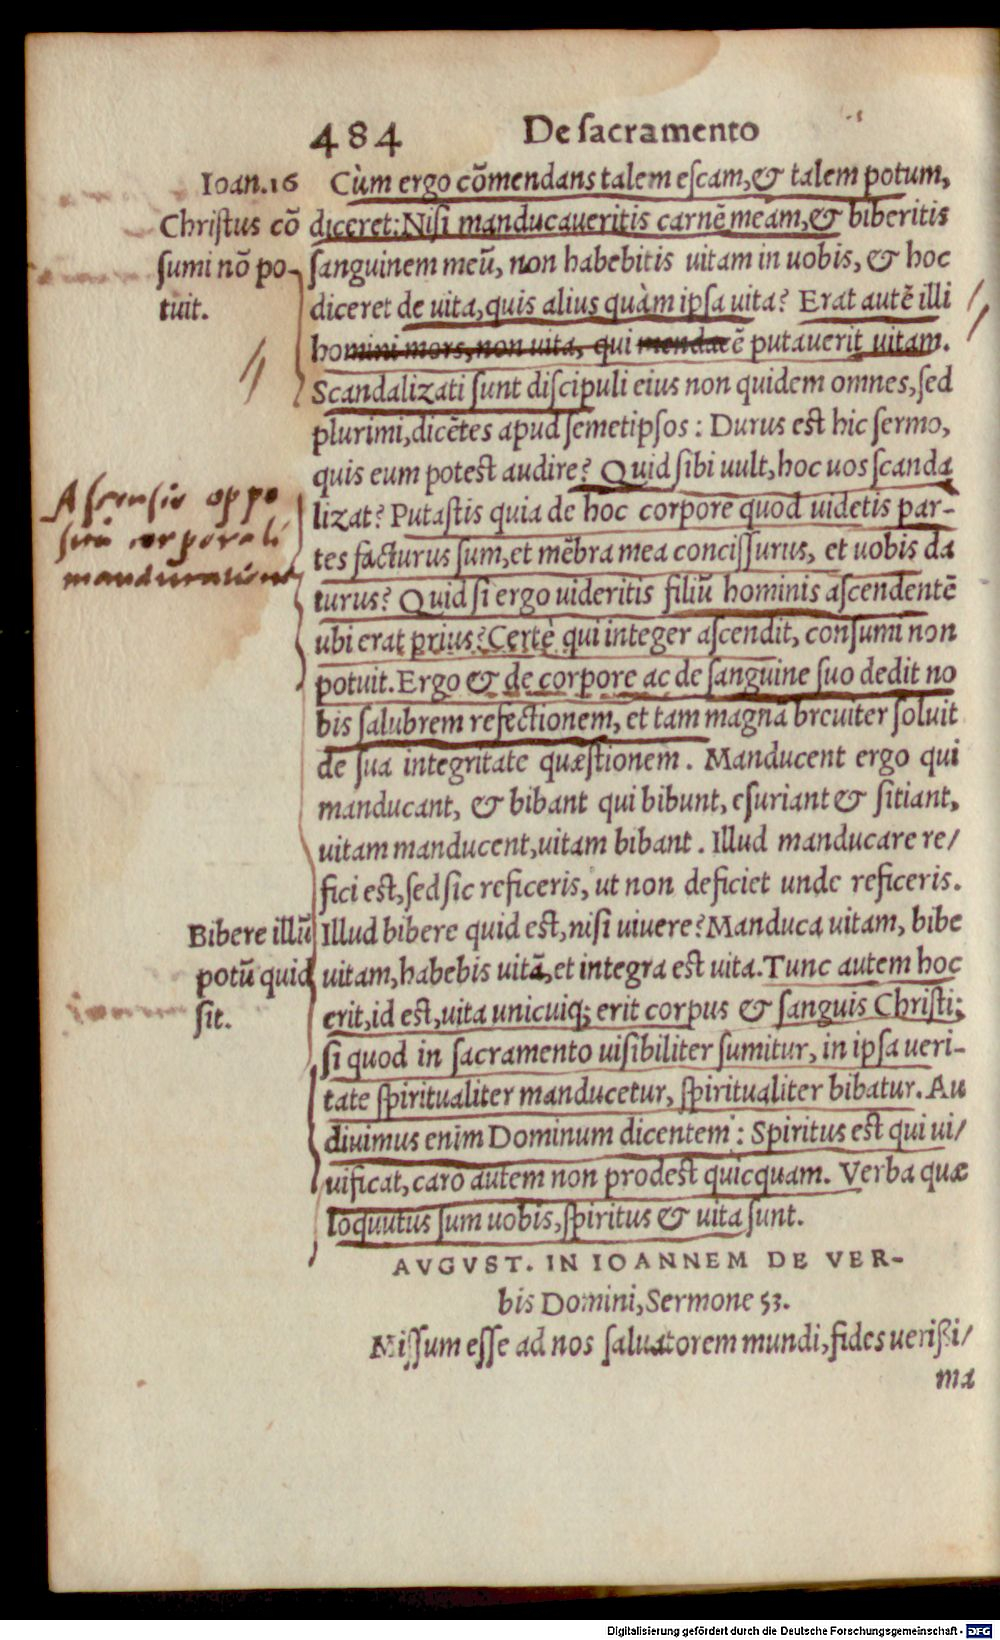 484 De sacramento
Ioan.16
Christus cõ
sumi nõ po-
tuit.
Cùm ergo cõmendans talem escam, & talem potum,
diceret: Nisi manducaveritis carnẽ meam, & biberitis
sanguinem meũ, non habebitis uitam in uobis, & hoc
diceret de uita, quis alius quàm ipsa uita? Erat autẽ illi
homini mors, non uita, qui mendacẽ putaverit uitam.
Scandalizati sunt discipuli eius non quidem omnes, sed
plurimi, dicẽtes apud semetipsos: Durus est hic sermo,
quis eum potest audire? Quid sibi uult, hoc uos scanda
lizat? Putastis quia de hoc corpore quod uidetis par-
tes facturus sum, et mẽbra mea concissurus, et uobis da
turus? Quid si ergo uideritis filiũ hominis ascendentẽ
ubi erat prius? Certè qui integer ascendit, consumi non
potuit. Ergo & de corpore ac de sanguine suo dedit no
bis salubrem refectionem, et tam magnã breuiter soluit
de sua integritate quæstionem. Manducent ergo qui
manducant, & bibant qui bibunt, esuriant & sitiant,
uitam manducent, uitam bibant. Illud manducare re/
fici est, sed sic reficeris, ut non deficiet unde reficeris.
Illud bibere quid est, nisi uiuere? Manduca uitam, bibe
uitam, habebis uitã, et integra est uita. Tunc autem hoc
erit, id est, uita unicuiq; erit corpus & sanguis Christi;
si quod in sacramento uisibiliter sumitur, in ipsa ueri-
tate spiritualiter manducetur, spiritualiter bibatur. Au
diuimus enim Dominum dicentem: Spiritus est qui ui/
uificat, caro autem non prodest quicquam. Verba quæ
loquutus sum uobis, spiritus & uita sunt.
Ascensio oppo
sita corporali
manducatione
Bibere illũ
potũ quid
sit.
AVGVST. IN IOANNEM DE VER-
bis Domini, Sermone 53.
Missum esse ad nos saluatorem mundi, fides uerißi/
ma
Digitalisierung gefördert durch die Deutsche Forschungsgemeinschaft - DFG